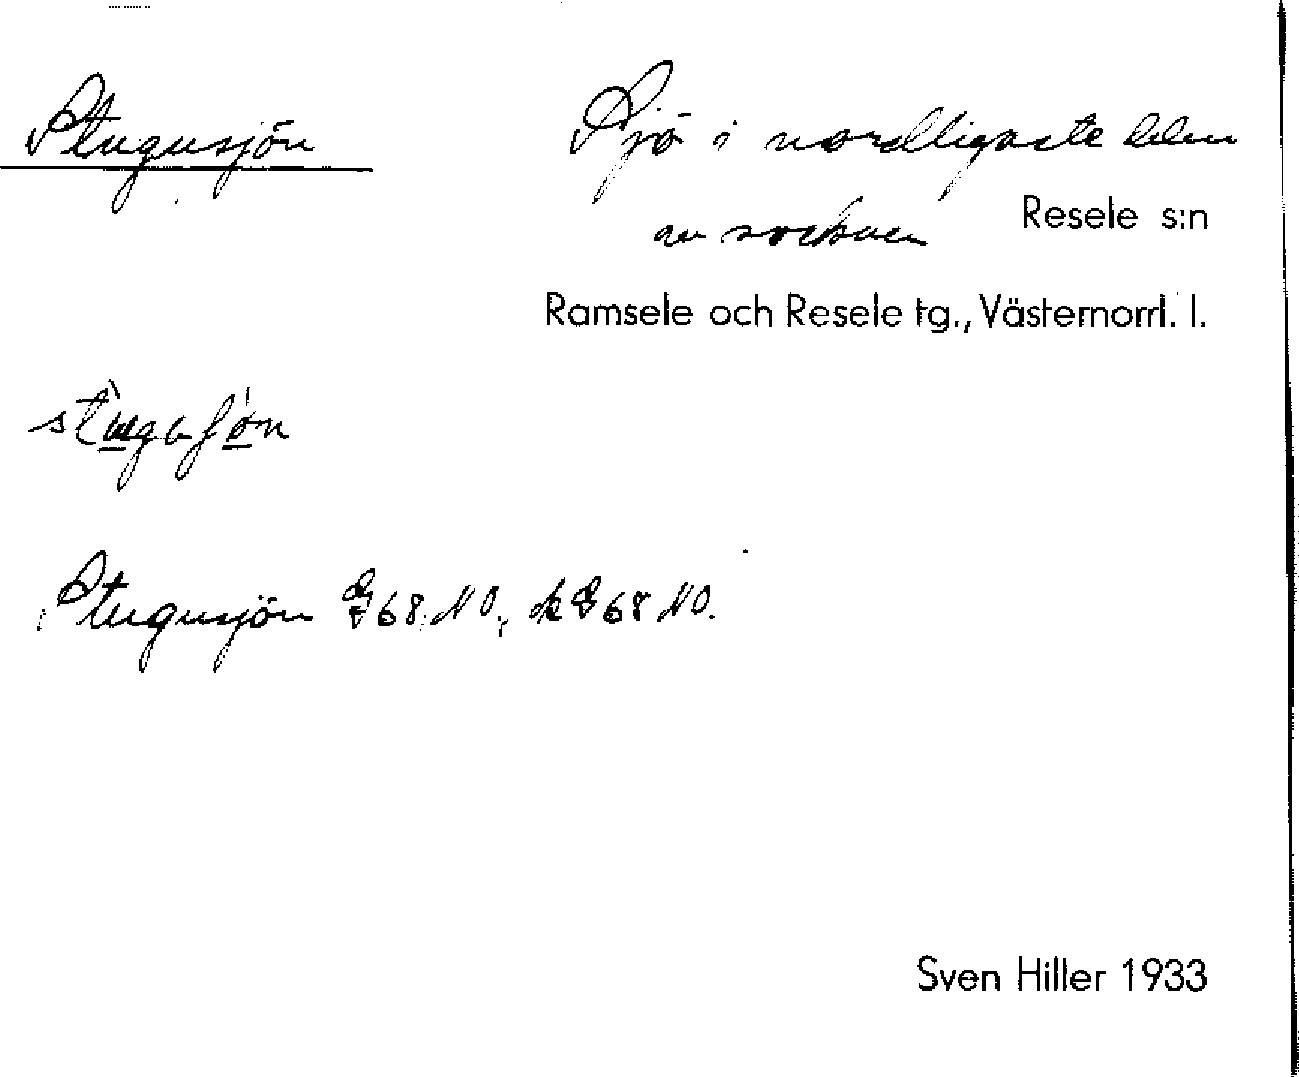 Stugusjön
Sjö i nordligaste delen
av socknen Resele s:n
Ramsele och Resele tg., Västernorrl. l.
Stugusjön G68 NO; k G68 NO.
Sven Hiller 1933